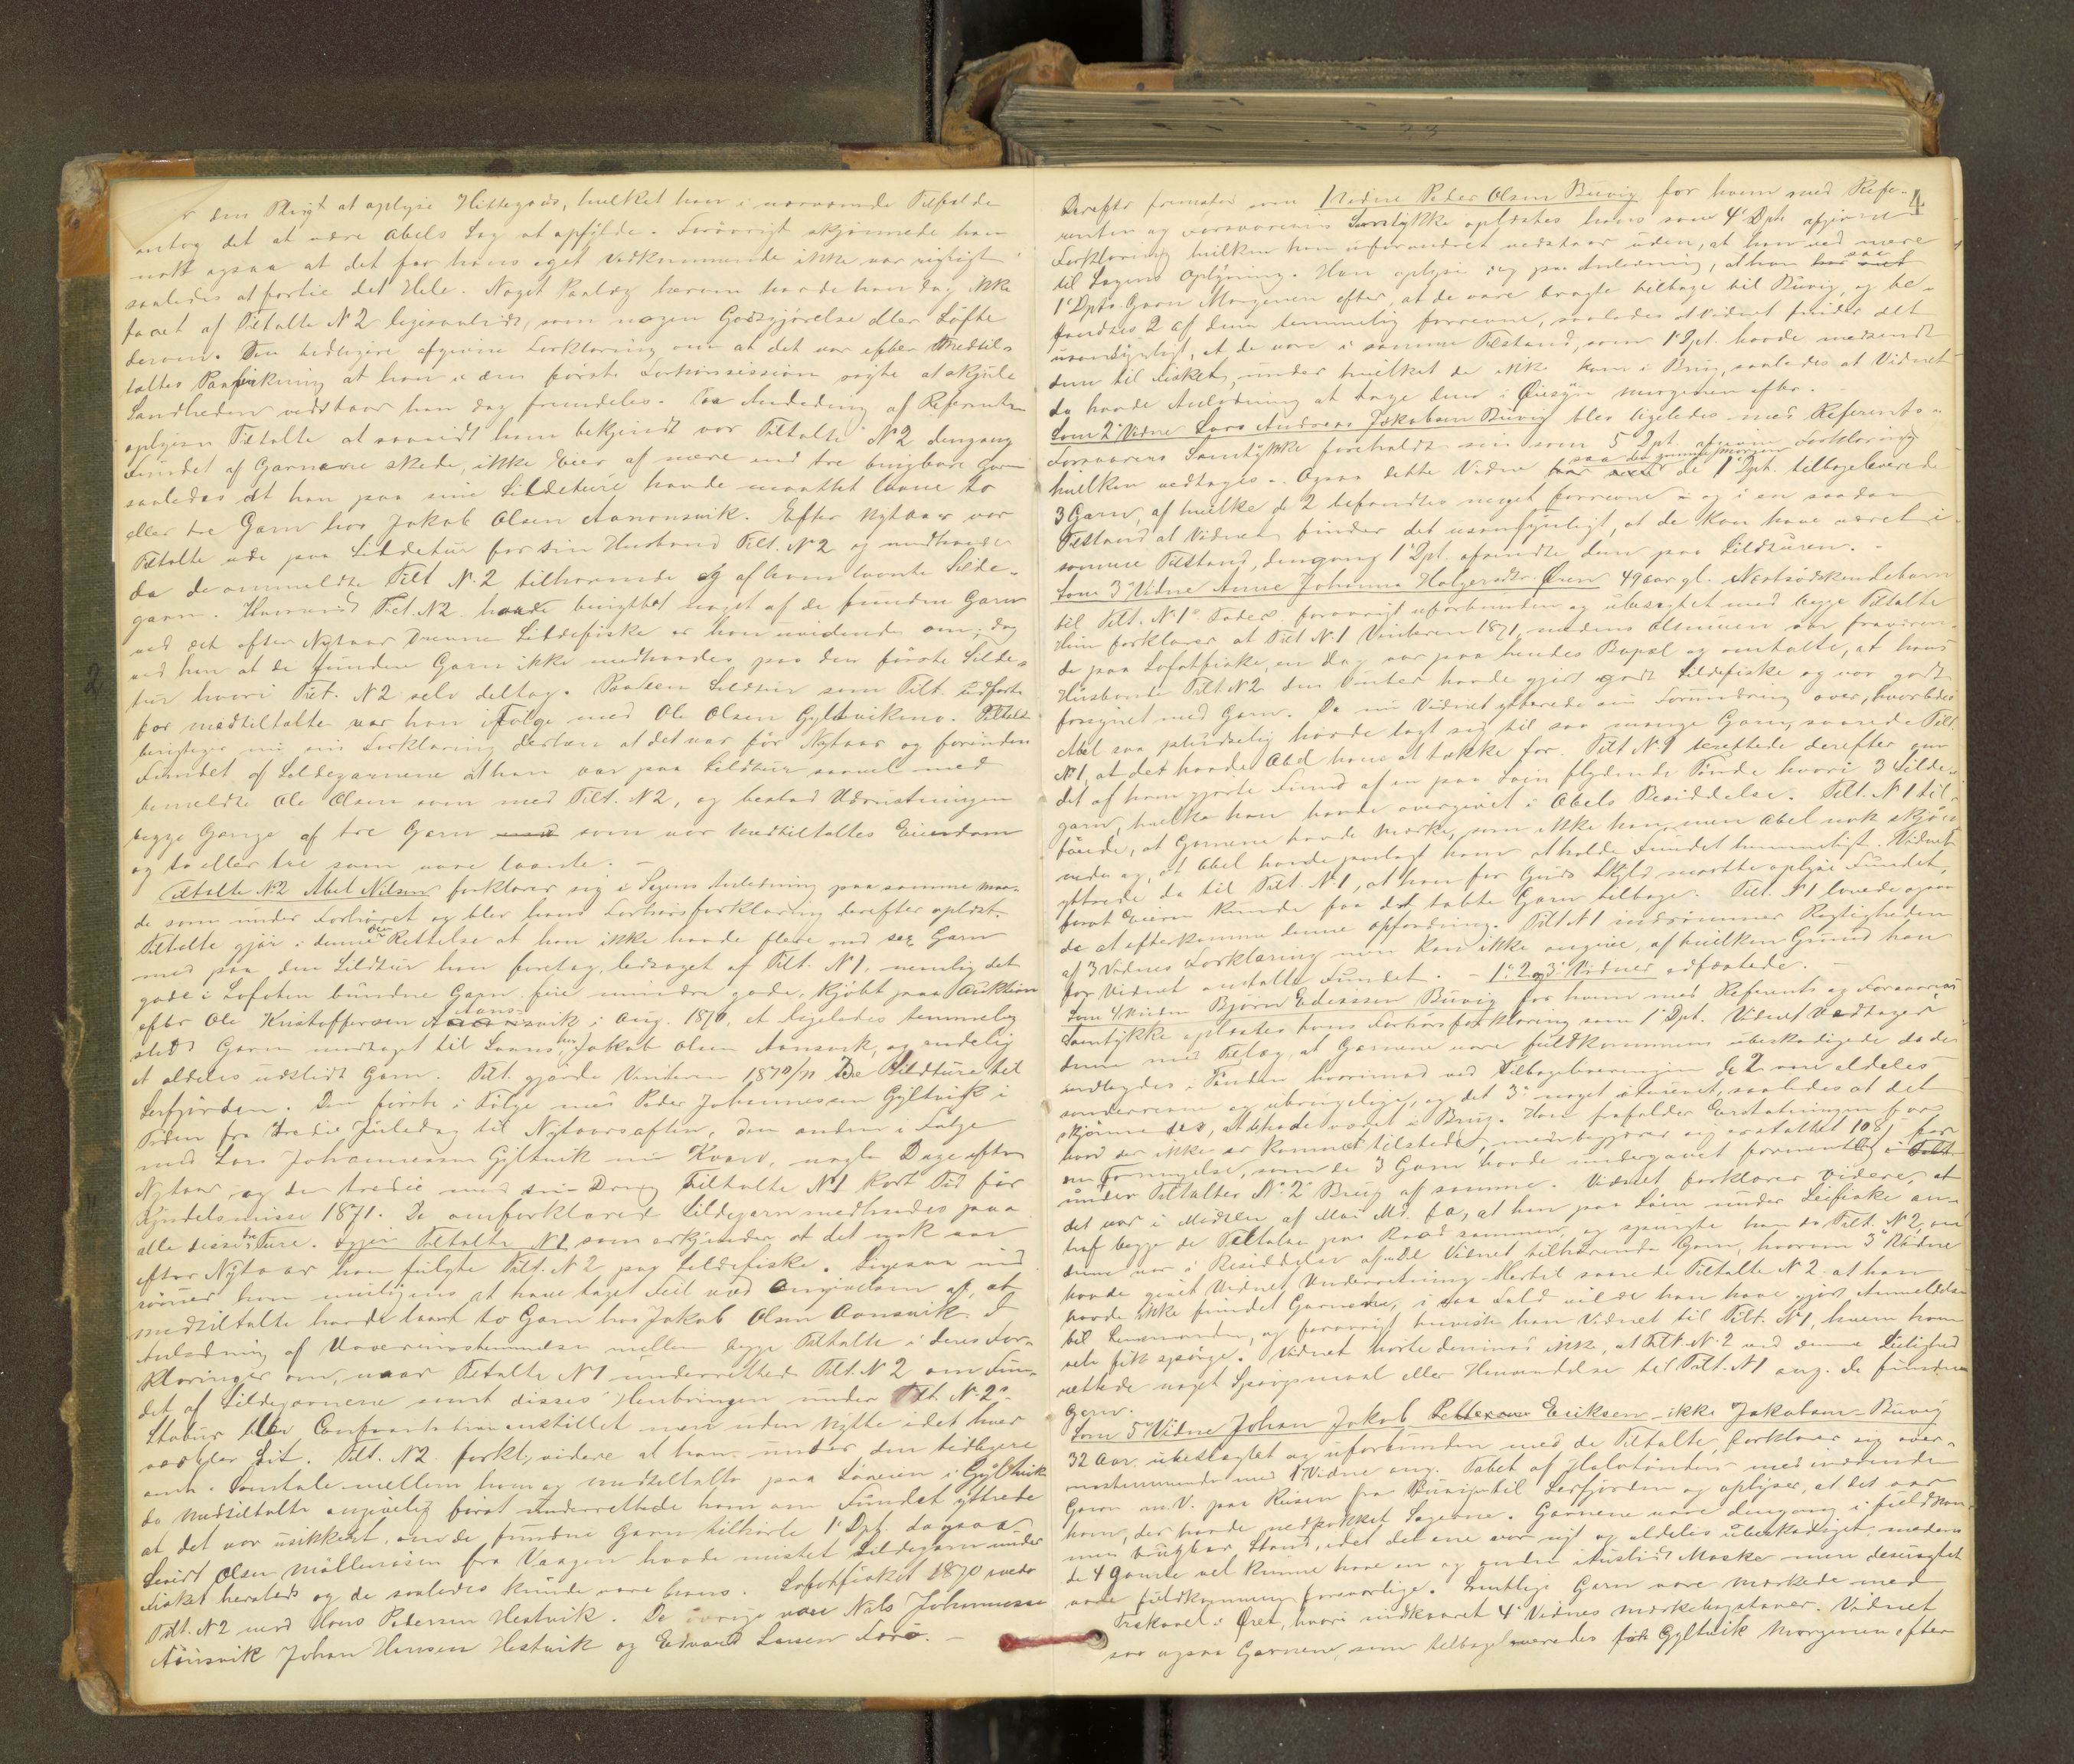 den Pligt at oplyse Hittegods, hvilket han i nærværende Tilfælde
antog det at være Abels Sag at opfylde. Forøvrigt skjønnede han
nokk ogsaa at det for hans eget Vedkommende ikke var rigtigt
saaledes at fortie det Hele. Noget Paalæg herom havde han dog ikke
faaet af Tiltalte N 2 ligesaalidt, som nogen Godtgjørelse eller Løfte
derom. Den tidligere afgivne Forklaring om at det var efter Medtil-
taltes Paavirkning at han i den første Forhørssession søgte at skjule
Sandheden vedstaar han dog fremdeles. Paa Anledning af Referenten
oplyser Tiltalte at saavidt ham bekjendt var Tiltalte N 2 dengang
Fundet af Garnene skede, ikke Eier af mere end tre brugbare Garn
saaledes at han paa sine Sildeture havde maattet laane to
eller tre Garn hos Jakob Olsen Aanonsvik. Efter Nytaar var
Tiltalte ude paa Sildetur for sin Husbond Tilt. N 2 og medhavde
da de ommeldte Tilt N. 2 tilhørende og af ham laante Silde-
garn. Hvorvidt Tilt. N2 havde benyttet noget af de fundne Garn
ved det efter Nytaar drevne Sildefiske er han uvidende om; dog
ved han at de fundne Garn ikke medhavdes paa den første Silde-
tur hvori Tilt. N2 selv deltog. Paa den Sildtur som Tilt. udførte
for medtiltalte var han i Følge med Ole Olsen Gyltvikmo. Tiltalte
berigtiger nu sin Forklaring derhen at det var før Nytaar og forinden
Fundet af Sildegarnene at han var paa Sildtur saavel med
bemeldte Ole Olsen som med Tilt. N2, og bestod Udrustningen
begge Gange af tre Garn som var Medtiltaltes Eiendom
og to eller tre som vare laante. —
Tiltalte N2 Abel Nilsen forklarer sig i Sagens Anledning paa samme maa-
de som under Forhøret og blev hans Forhørsforklaring derefter oplæst.
Tiltalte gjør i denne den Rettelse at han ikke havde flere end sex Garn
med paa den Sildtur han foretog, ledsaget af Tilt. N1, nemlig det
gode i Lofoten bundne Garn, fire mindre gode, kjøbt paa Auktion
efter Ole Kristoffersen Aansvik i Aug. 1870, et ligeledes temmelig
slidt Garn modtaget til Laans hos Jakob Olsen Aansvik, og endelig
et aldeles udslidt Garn. Tilt. gjorde Vinteren 1870/71 tre Sildture til
Leirfjorden. Den første i Følge med Peder Johannessen Gyltvik i
Tiden fra tredie Juledag til Nytaarsaften, den anden i Følge
med Lars Johannessen Gyltvik nu Kvarv, nogle Dage efter
Nytaar, og den tredie med sin Dreng Tiltalte N1 kort Tid før
Kyndelsmisse 1871. De omforklarede Sildegarn medhavdes paa
alle disse tre Ture. Tiltalte N1 som erkjender at det nok var
efter Nytaar han fulgte Tilt. N 2 paa Sildefiske. Ligesaa ind
rømmer han muligens at have taget Feil ved Angivelsen af, at
medtiltalte havde laant to Garn hos Jakob Olsen Aansvik. I
Anledning af Uoverensstemmelsen mellem begge Tiltalte i deres For-
klaringer om, naar Tiltalte N 1 underrettede Tilt. N 2 om Fun-
det af Sildegarnene samt disses Henbringen under Tilt. N. 2s
Stabur blev Confrontation anstillet men uden Nytte idet hver
vedblev Sit. Tilt. N2 forkl. videre at han under den tidligere
omh. Samtale mellem ham og medtiltalte paa Løveien i Gyltvik
da Medtiltalte angivelig først underrettede ham om Fundet yttrede
at det var usikkert, om de fundne Garn tilhørte 1 Dpt. da ogsaa
Sivert Olsen Møllerosen fra Vaagen havde mistet Sildegarn under
Fisket hersteds og de saaledes kunde være hans. Lofotfisket 1870 roede
Tilt. N2 med Hans Pedersen Hestvik. De øvrige vare Nils Johannessen
Aansvik Johan Hansen Hestvik og Edvard Larsen Forø. —
4
Derefter fremstod som 1 Vidne Peder Olsen Buvig for hvem med Refe-
renten og Forsvarerens Samtykke oplæstes hans som 4 Dpt. afgivne
Forklaring hvilken han uforandret vedstaar uden, at han ved mere
til Sagens Oplysning. Han oplyser dog paa Anledning, at han saa
1 Dpts. Garn Morgenen efter, at de vare bragte tilbage til Buvig, og be-
fandtes 2 af dem temmelig forrevne, saaledes at Vidnet finder det
usandsynligt, at de vare i samme Tilstand, som 1 Dpt. havde medsendt
dem til Fisket, under hvilket de ikke kom i Brug, saaledes at Vidnet
da havde Anledning at tage dem i Øiesyn morgenen efter. -
Som 2 Vidne Lars Andreas Jakobsen Buvig blev ligeledes med Referents-
Forsvarerens Samtykke foreholdt sin som 5 Dpt. afgivne Forklaring
hvilken vedtages. - Ogsaa dette Vidne saa den samme Morgen de 1 Dpt. tilbageleverede
3 Garn, af hvilke de 2 befandtes meget forrevne - og i en saadan
Tilstand at Vidnet finder det usandsynligt, at de kan have været i
samme Tilstand, dengang 1 Dpt. afsendte dem paa Sildturen. -
Som 3 Vidne Anne Johanna Holgersdtr. Øren 49 aar gl. Næstsødskendebarn
til Tilt. N. 1s Fader forøvrigt uforbunden og ubeslægtet med begge Tiltalte
Hun forklarer at Tilt N 1 Vinteren 1871, medens Almuen var fraværen-
de paa Lofotfiske, en Dag var paa hendes Bopæl og omtalte, at hans
Husbonde Tilt N2 den Vinter havde gjort godt Sildefiske og var godt
forsynet med Garn. Da nu Vidnet yttrede sin Forundring over, hvorledes
Abel saa pludselig havde lagt sig til saa mange Garn, svarede Tilt.
N1, at det havde Abel ham at takke for. Tilt N1 berettede derefter om
det af ham gjorte Fund af en paa Søen flydende Tønde hvori 3 Silde-
garn, hvilke han havde overgivet i Abels Besiddelse. Tilt. N1 til-
føiede, at Garnene havde Mærke, som ikke han, men Abel nok skjøn-
nede og, at Abel havde paalagt ham at holde Fundet hemmeligt. Vidnet
yttrede da til Tilt. N1, at han for Guds Skyld maatte oplyse Fundet,
forat Eieren kunde faa det tabte Garn tilbage. Tilt. N 1 lovede ogsaa
da at efterkomme denne opfordring. Tilt. N1 indrømmer Rigtigheden
af 3 Vidnes Forklaring men kan ikke angive, af hvilken Grund han
for Vidnet omtalte Fundet. - 1, 2 og 3 Vidner edfæstede. -
Som 4 Vidne Bjørn Edissen Buvig for hvem med Referents og Forsvarers
Samtykke oplæstes hans Forhørsforklaring som 1 Dpt. Vidnet vedtager
denne med Tillæg, at Garnene vare fuldkommen ubeskadigede da de
nedlagdes i Tønden hvorimod ved Tilbageleveringen de 2 vare aldeles
sønderrevne og ubrugelige, og det 3 noget iturevet, saaledes at det
skjønnedes, at de havde været i Brug. Han frafalder Erstatningen for
hvad der ikke er kommet tilstede, men begjærer sig erstattet 108 β for
en Fornyelse, som de 3 Garn havde undergaaet formentlig
under Tiltaltes N. 2s Brug af samme. Vidnet forklarer videre, at
det var i Midten af Mai Md. f.a, at han paa Søen under Seifiske an-
traf begge de Tiltalte paa Baad sammen, og spurgte han da Tilt. N2, om
denne var i Besiddelse af de Vidnet tilhørende Garn, hvorom 3 Vidne
havde givet Vidnet Underretning. Hertil svarede Tiltalte N 2 at han
havde ikke fundet Garnene, i saa Fald vilde han have gjort Anmeldelse
til Lensmanden, og forøvrigt henviste han Vidnet til Tilt. N1, hvem han
selv fik spørge. Vidnet hørte derimod ikke, at Tilt. N. 2 ved denne Leilighed
rettede noget Spørgsmaal eller Henvendelse til Tilt. N1 ang. de fundne
Garn.
Som 5 Vidne Johan Jakob Eriksen - ikke Jakobsen - Buvig
32 Aar, ubeslægtet og uforbunden med de Tiltalte, forklarer sig over-
ensstemmende med 1 Vidne ang. Tabet af Halvtønden med indende
Garn m.V. paa Reisen fra Buvig til Leirfjorden og oplyser, at det var
ham, der havde nedpakket Sagerne. Garnene vare dengang i fuldkom-
men brugbar Stand, idet det ene var nyt og aldeles ubeskadiget, medens
de 4 gamle vel kunne have en og anden itusled Maske men desuagtet
vare fuldkommen forsvarlige. Samtlige Garn vare mærkede med
Trækavl i Øret, hvori indskaaret 4 Vidnes Mærkebogstaver. Vidnet
saa ogsaa Garnene, som tilbageleveredes fra Gyltvik Morgenen efter